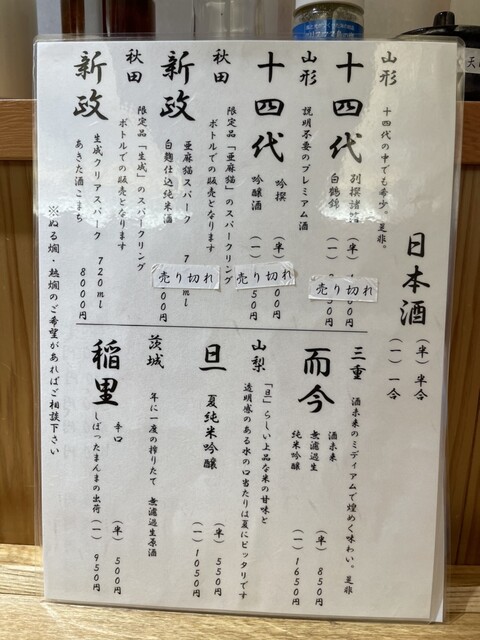 日本酒
(半)半合
(一)一合
山形
十四代の中でも希少。是非。
十四代
別撰諸白
白鶴錦
(半)
(一)
売り切れ
山形
説明不要のプレミアム酒
十四代
吟撰
吟醸酒
(半)
(一)
50円
売り切れ
秋田
限定品「亜麻猫」のスパークリング
ボトルでの販売となります
新政
亜麻猫スパーク
白麹仕込純米酒
ml
000円
売り切れ
秋田
限定品「生成」のスパークリング
ボトルでの販売となります
新政
生成クリアスパーク 720ml
あきた酒こまち 8000円
三重
酒未来のミディアムで煌めく味わい。是非
而今
酒未来
無濾過生
純米吟醸
(半) 850円
(一) 1650円
山梨
「旦」らしい上品な米の甘味と
透明感のある水の口当たりは夏にピッタリです
旦
夏純米吟醸
(半) 550円
(一) 1050円
茨城
年に一度の搾りたて 無濾過生原酒
稲里
辛口
しぼったまんまの出荷
(半) 500円
(一) 950円
※ぬる燗・熱燗のご希望があればご相談下さい